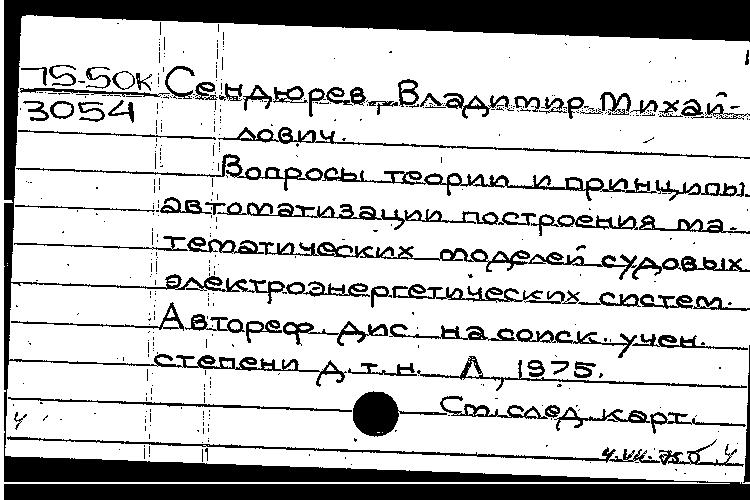 75-50к Сендюрев, Владимир Михай-
3054
лович.
Вопросы теории и принципы
автоматизации построения ма-
тематических моделей судовых
электроэнергетических систем.
Автореф. дис. на соиск. учен.
степени д.т.н. Л, 1975.
См. след. карт.